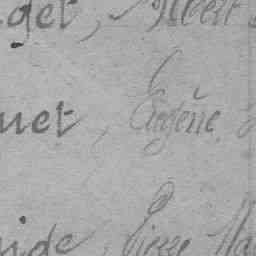 det, Albert
uet, Eugène
ide, Pierre Ma